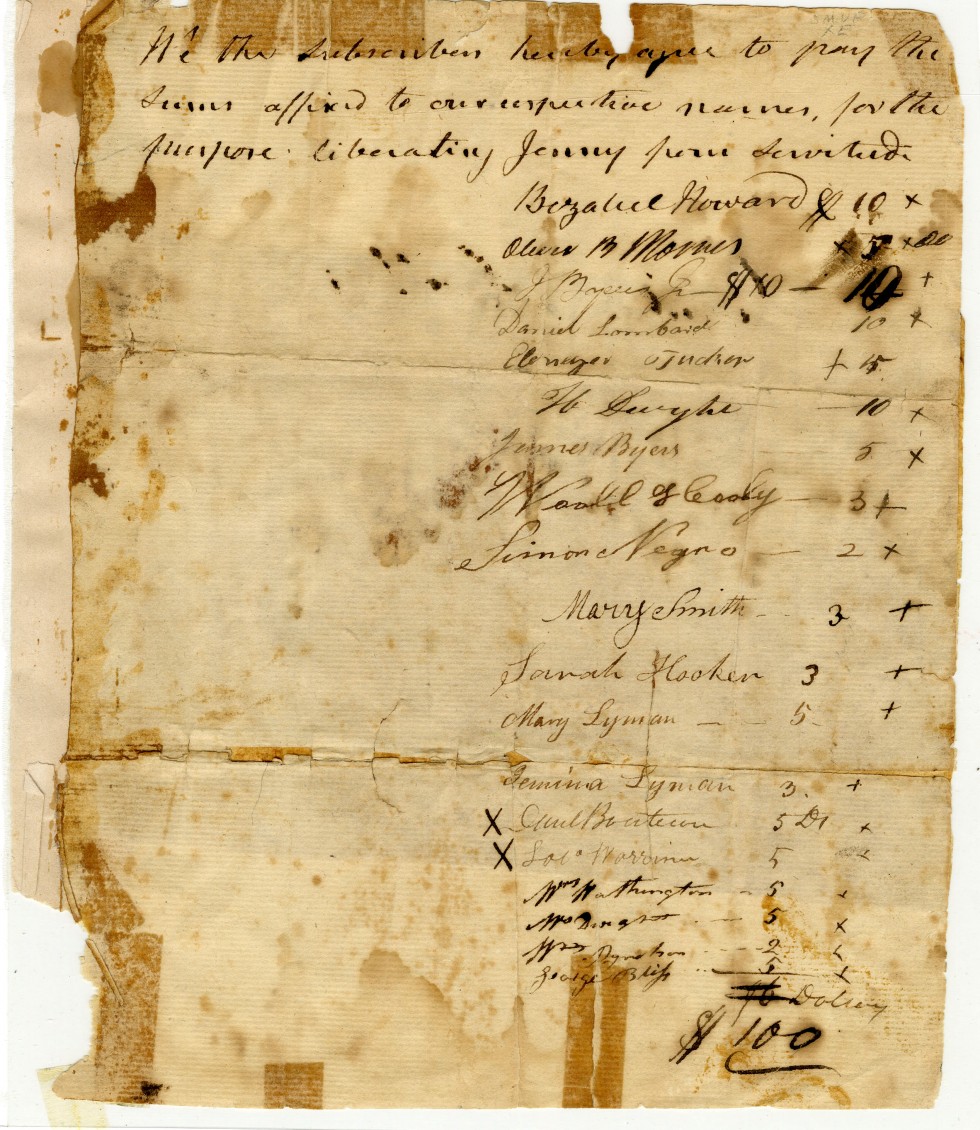 We the subscribers hereby agree to pay the
sums affixed to our respective names, for the
purpose liberating Jenny from servitude
Bezaleel Howard $ 10 ×
Oliver B Morris × 5 ×
$10 — 10 +
Daniel Lombard 10 ×
Ebenezer Tucker + 5
Dwight — 10 ×
James Byers 5 ×
& Cooly — 3 +
Simon Negro — 2 ×
Mary Smith - - 3 +
Sarah Hooker 3 +
Mary Lyman — - 5 - +
Jemima Lyman 3. +
X 5 Ds ×
X 5 ×
5 ×
Mrs Dwight - - 5 ×
Mrs - - - 2 ×
George Bliss - - 5 ×
Dollars
$ 100